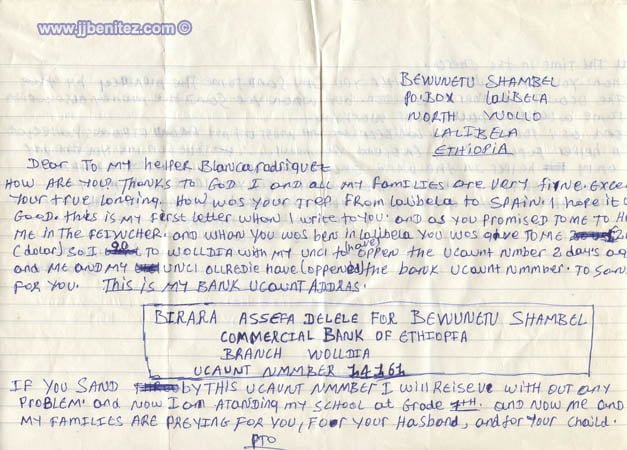 www.jjbenitez.com ©
BEWUNETU SHAMBEL
PO.BOX LALIBELA
NORTH WOLLO
LALIBELA
ETHIOPIA
Dear TO MY helper Blancarodriguez
HOW ARE YOU? THANKS TO GOD I and all my FAMILIES are very fiNe. EXCE
YOUR true LONGING. HOW WOS YOUR TREP FROM Lalibela to SPAIN. I hope it
GOOD. this is my first Letter whon I write to you. and as you promised TO ME TO H
ME IN THE FEIWCHER. and WHON YOU WOS ben in Lalibela YOU WOS gave TO ME
(dolar) so I go TO WOLLDIA with MY UNCL to (have) oppen the ucaunt nmber 2 days ag
and ME and MY UNCL ollredie have (oppened) the bank ucaunt nummber. TO San
FOR YOU. This is MY BANK UCOUNT ADDRAS.
BIRARA ASSEFA DELELE FOR BEWUNETU SHAMBEL
COMMERCIAL BANK OF ETHIOPIA
BRANCH WOLLDIA
UCAUNT NMMBER 14161
IF YOU SAND by THIS UCAUNT NMMBER I will Reiseve with out any
PROBLEM. and NOW I am ATANDING my SCHOOL at Grade 7th. and NOW Me and
MY FAMILIES ARE PREYING FOR YOU, FOR YOUR Hasband, and for your chaild.
PTO